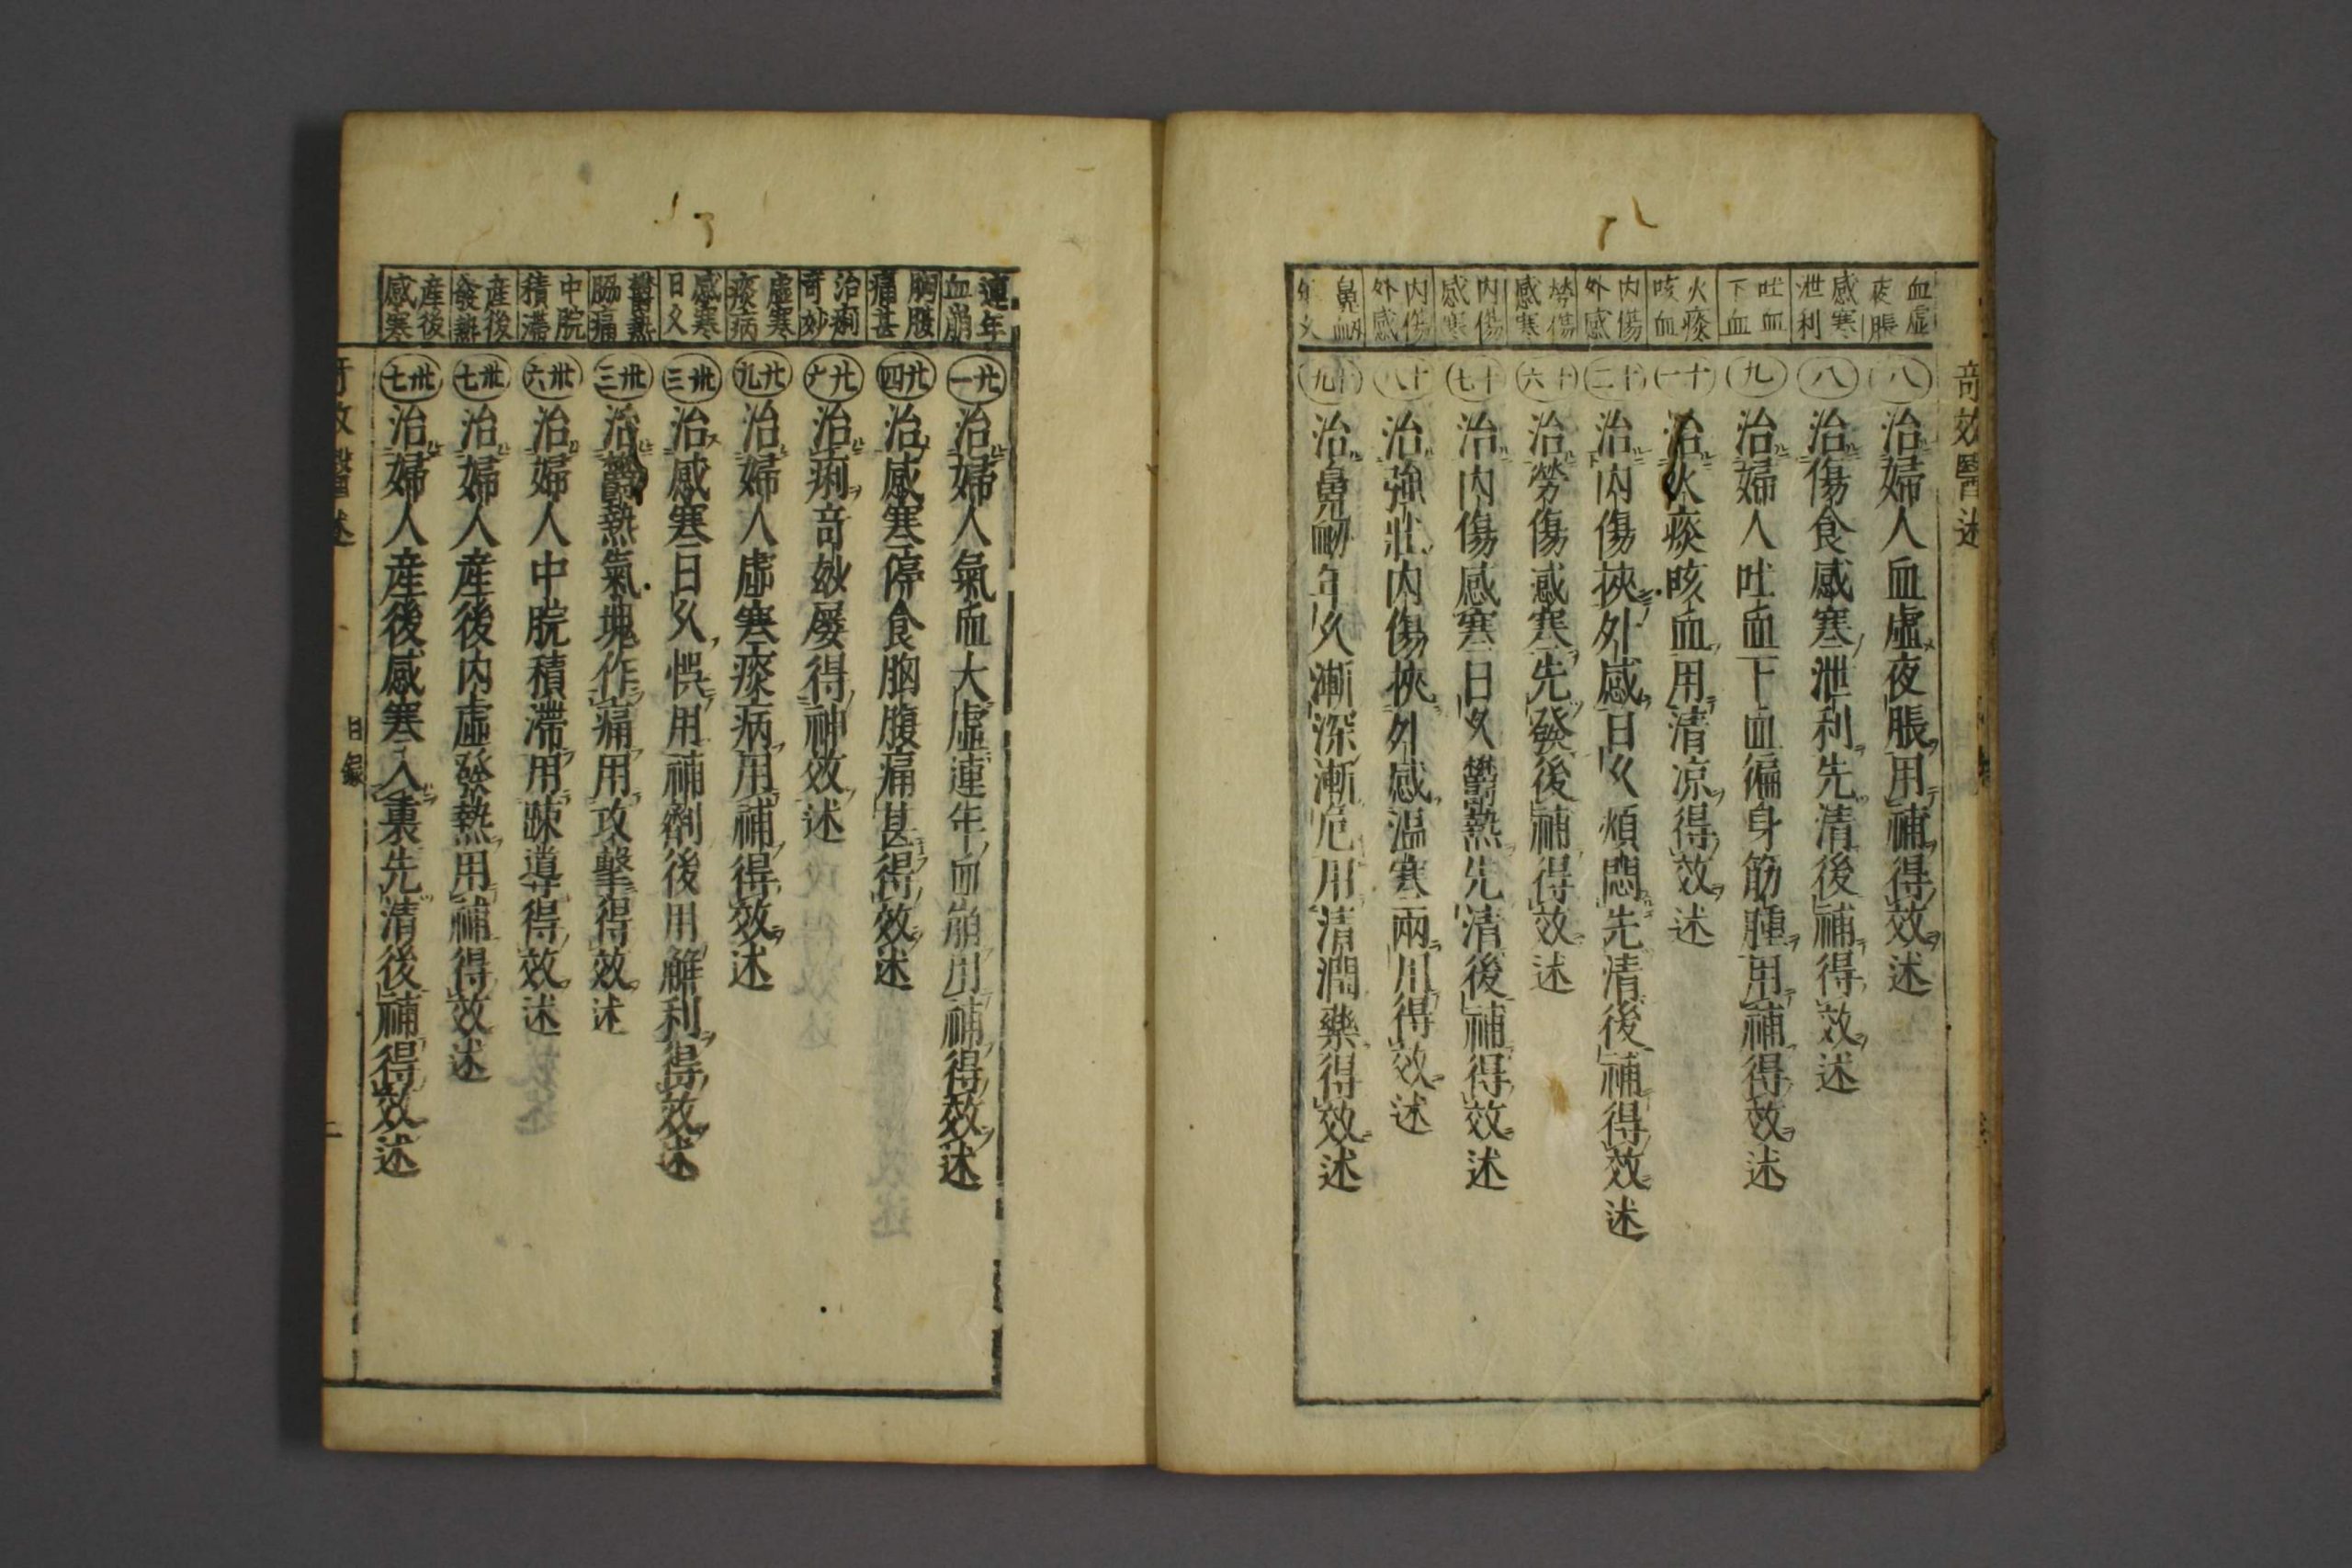 奇效醫述
血虛夜脹
八
治婦人血虛夜脹用補得效述
感寒泄利
八
治傷食感寒泄利先清後補得效述
吐血下血
九
治婦人吐血下血徧身筋腫用補得效述
火痰咳血
十一
治火痰咳血用清凉得效述
内傷外感
十二
治内傷挾外感日久煩悶先清後補得效述
勞傷感寒
十六
治勞傷感寒先發後補得效述
内傷感寒
十七
治内傷感寒日久鬱熱先清後補得效述
内傷外感
十八
治強壯内傷挾外感温寒兩用得效述
鼻衂年久
十九
治鼻衂年久漸深漸危用清潤藥得效述
連年血崩
廿一
治婦人氣血大虛連年血崩用補得效述
胸腹痛甚
廿四
治感寒停食胸腹痛甚得效述
治痢奇妙
廿六
治痢奇妙屡得神效述
虛寒痰病
廿九
治婦人虛寒痰病用補得效述
感寒日久
卅三
治感寒日久悞用補劑後用解利得效述
鬱熱脇痛
卅三
治鬱熱氣塊作痛用攻擊得效述
中脘積滯
卅六
治婦人中脘積滯用踈導得效述
産後發熱
卅七
治婦人産後内虛發熱用補得效述
産後感寒
卅七
治婦人産後感寒入裏先清後補得效述
奇效醫述
目録
二